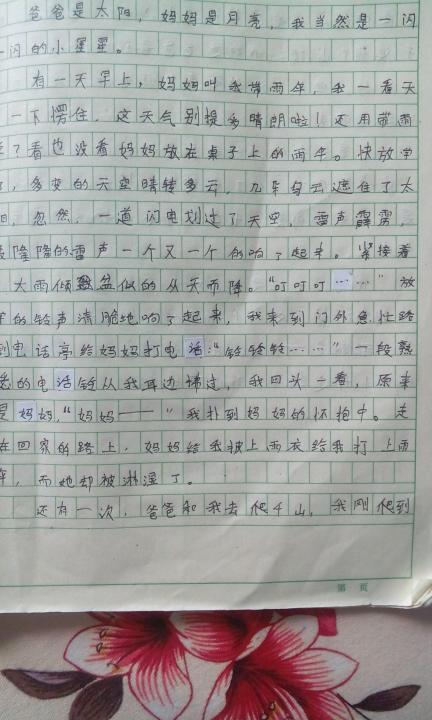 爸爸是太阳，妈妈是月亮，我当然是一闪
一闪的小星星。
有一天早上，妈妈叫我带雨伞，我一看天
一下愣住，这天气别提多晴朗啦！还用带雨
？看也没看妈妈放在桌子上的雨伞。快放学
，多变的天空晴转多云，几朵乌云遮住了太
阳，忽然，一道闪电划过了天空，雷声霹雳，
隆隆的雷声一个又一个的响了起来。紧接着
大雨倾盆似的从天而降。“叮叮叮……”放
学的铃声清脆地响了起来，我来到门外急忙路
到电话亭给妈妈打电话：“铃铃铃……”一段熟
悉的电话铃从我耳边拂过，我回头一看，原来
是妈妈，“妈妈——”我扑到妈妈的怀抱中。走
在回家的路上，妈妈给我披上雨衣给我打上雨
伞，而她却被淋湿了。
还有一次，爸爸和我去爬山，我刚爬到
第 页